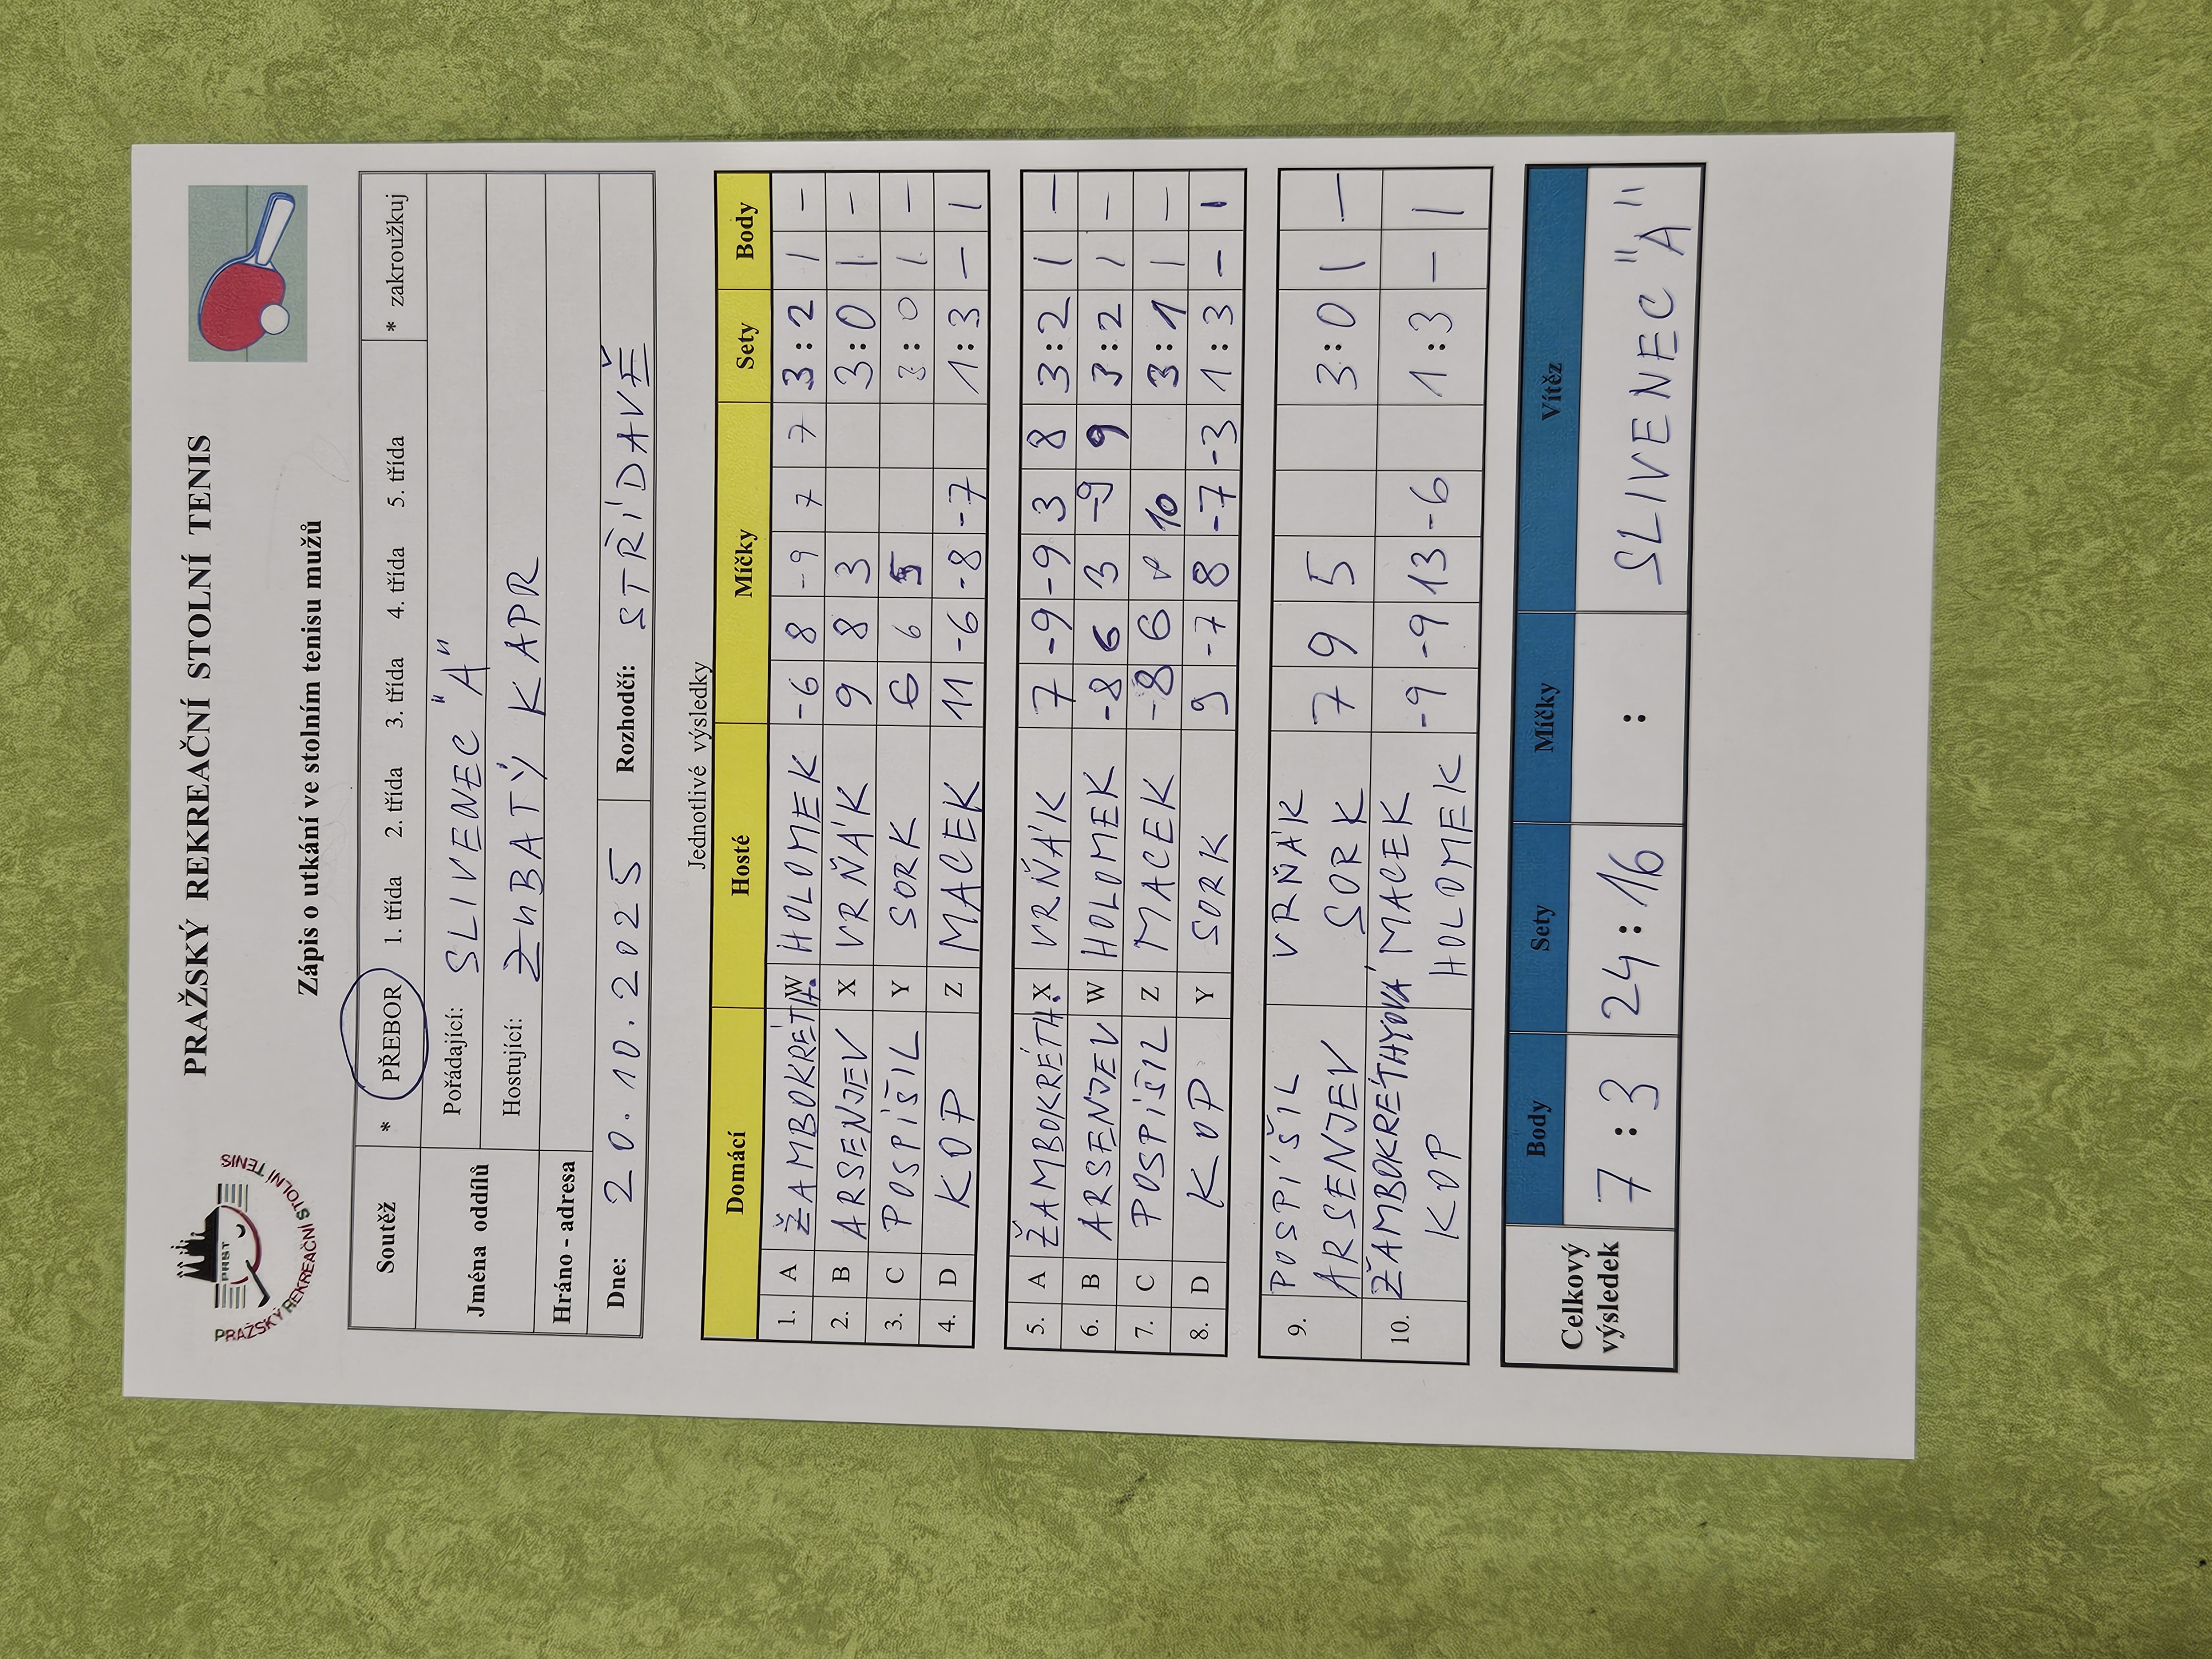 PRAŽSKÝ REKREAČNÍ STOLNÍ TENIS
PRST
PRAŽSKÝ REKREAČNÍ STOLNÍ TENIS
Zápis o utkání ve stolním tenisu mužů
Soutěž * PŘEBOR 1. třída 2. třída 3. třída 4. třída 5. třída * zakroužkuj
Jména oddílů Pořádající: SLIVENEC "A"
Hostující: ZUBATÝ KAPR
Hráno - adresa
Dne: 20.10.2025 Rozhodčí: STŘÍDAVĚ
Jednotlivé výsledky
Domácí Hosté Míčky Sety Body
1. A ŽAMBOKRÉTH. W HOLOMEK -6 8 -9 7 7 3:2 1 –
2. B ARSENJEV X VRŇÁK 9 8 3 3:0 1 –
3. C POSPÍŠIL Y SORK 6 6 5 3:0 1 –
4. D KOP Z MACEK 11 -6 -8 -7 1:3 – 1
5. A ŽAMBOKRÉTH. X VRŇÁK 7 -9 -9 3 8 3:2 1 –
6. B ARSENJEV W HOLOMEK -8 6 3 -9 9 3:2 1 –
7. C POSPÍŠIL Z MACEK -8 6 8 10 3:1 1 –
8. D KOP Y SORK 9 -7 8 -7 -3 1:3 – 1
9. POSPÍŠIL VRŇÁK
ARSENJEV SORK 7 9 5 3:0 1 –
10. ŽAMBOKRÉTHYOVÁ MACEK -9 -9 13 -6 1:3 – 1
KOP HOLOMEK
Celkový výsledek Body Sety Míčky Vítěz
7:3 24:16 : SLIVENEC "A"